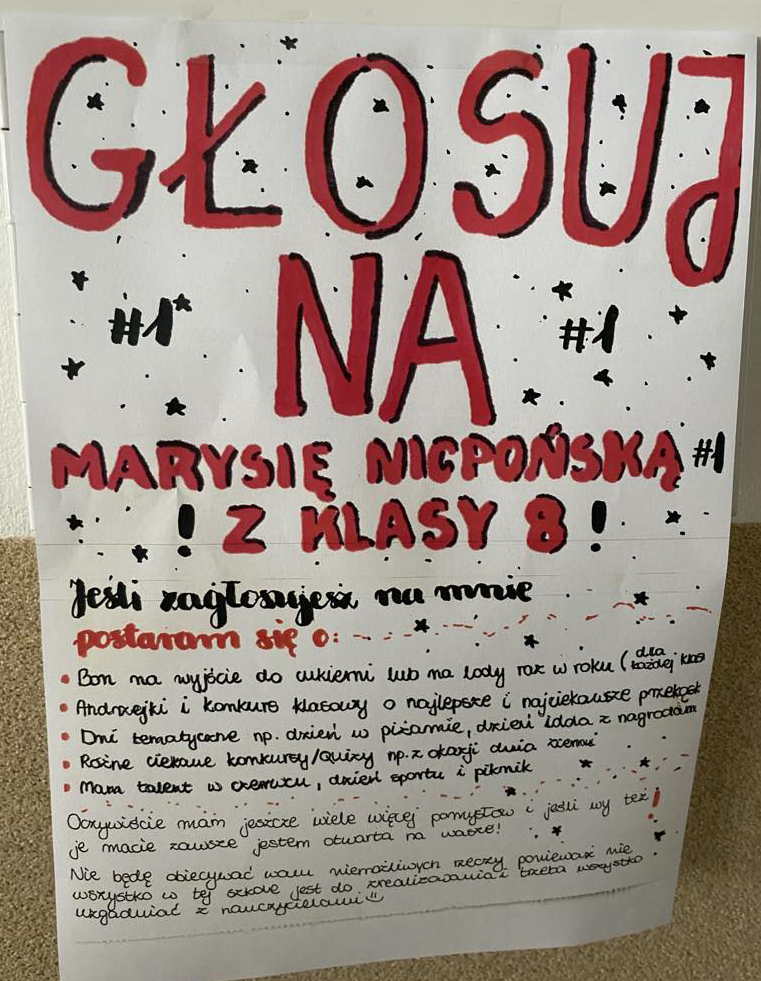 GŁOSUJ
#1 NA #1
MARYSIĘ NICPOŃSKĄ #1
! Z KLASY 8 !
Jeśli zagłosujesz na mnie
postaram się o:
• Bon na wyjście do cukierni lub na lody raz w roku (dla każdej klas
• Andrzejki i konkurs klasowy o najlepsze i najciekawsze przekąsk
• Dni tematyczne np. dzień w piżamie, dzień idola z nagrodam
• Różne ciekawe konkursy/Quizy np. z okazji dnia ziemi
• Mam talent w czerwcu, dzień sportu i piknik
Oczywiście mam jeszcze wiele więcej pomysłów i jeśli wy też !
je macie zawsze jestem otwarta na wasze!
Nie będę obiecywać wam niemożliwych rzeczy ponieważ nie
wszystko w tej szkole jest do zrealizowania i trzeba wszystko
uzgadniać z nauczycielami